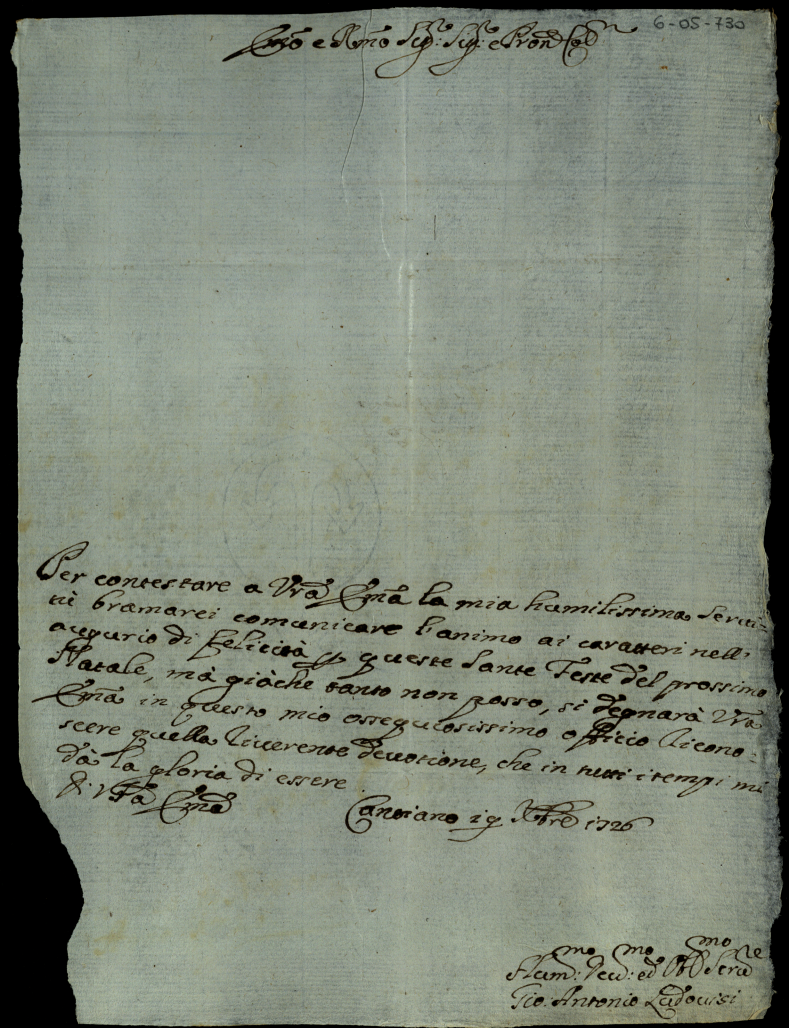 6-05-730
Emo e Rmo Sig: Sig: e Pron Col
Per contestare a Vra Ema la mia humilissima servi=
tù bramarei comunicare l'animo ai caratteri nell'
augurio di felicità p queste Sante Feste del prossimo
Natale, mà giàche tanto non posso, si degnarà Vra
Ema in questo mio ossequiosissimo officio ricono=
scere quella riverente devotione, che in tutti i tempi mi
dà la gloria di essere
Di Vra Ema Cantiano 19 Xbre 1726
Hum:mo Dev:mo ed Obl:mo Serv:re
Gio. Antonio Ludovisi